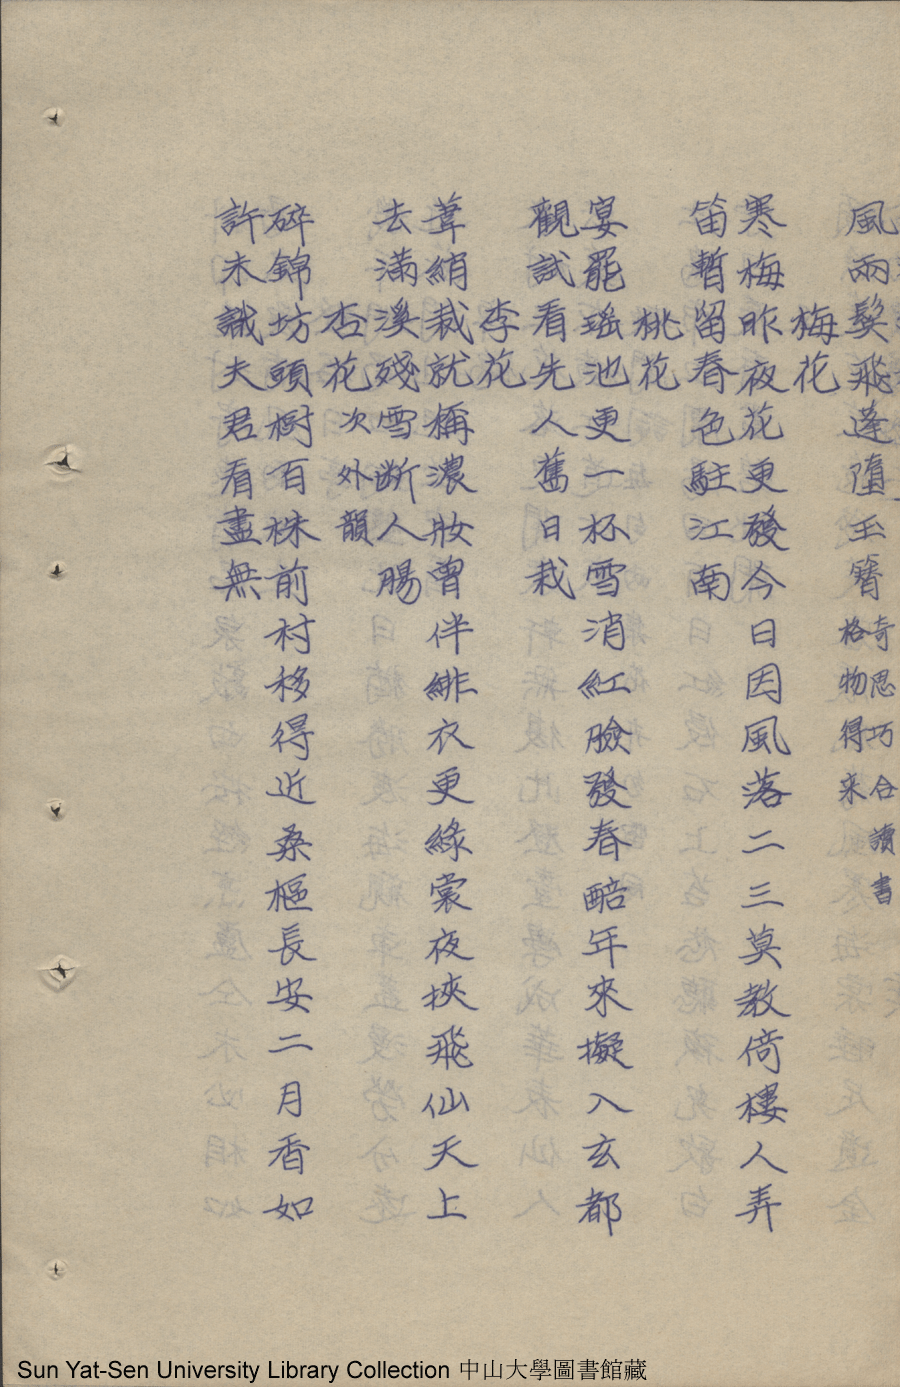 風雨鬓飛蓬墮玉簪 奇思巧合讀書
格物得来
梅花
寒梅昨夜花更發今日因風落二三莫教倚樓人弄
笛暫留春色駐江南
桃花
宴罷瑶池更一杯雪消紅臉發春醅年來擬入玄都
觀試看先人舊日栽
李花
葺綃裁就稱濃妝曾伴緋衣更綠裳夜挾飛仙天上
去滿溪殘雪斷人腸
杏花 次外韻
碎錦坊頭樹百株前村移得近桑樞長安二月香如
許未識夫君看盡無
Sun Yat-Sen University Library Collection 中山大學圖書館藏